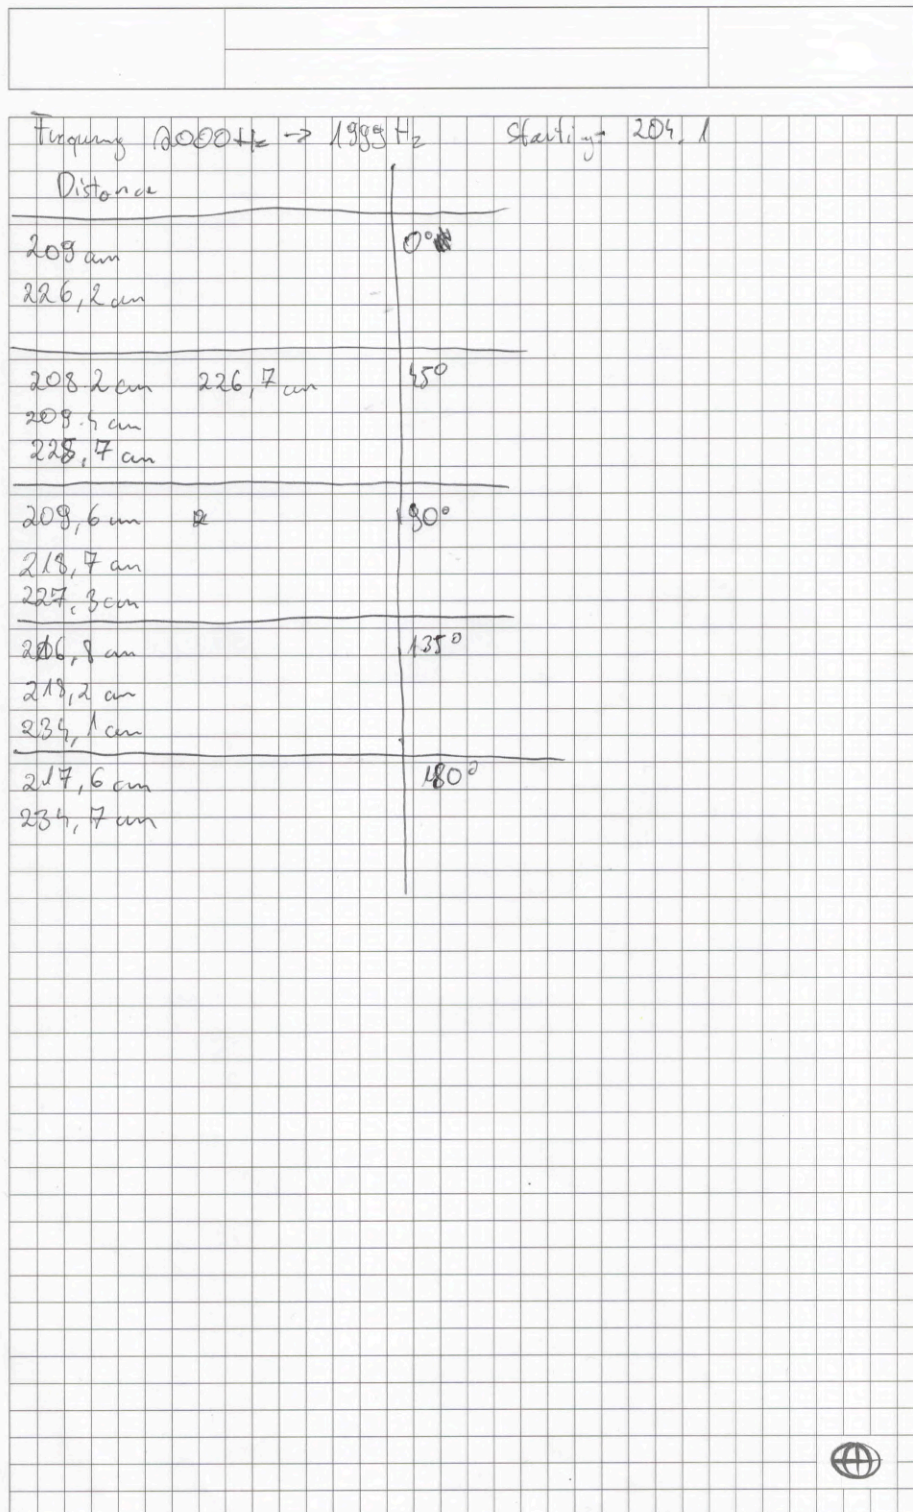 Frequency 2000Hz -> 1999 Hz Starting: 204,1
Distance
209 cm 0°
226,2 cm
208,2 cm 226,7 cm 45°
209,4 cm
228,7 cm
209,6 cm 90°
218,7 cm
227,3 cm
216,8 cm 135°
218,2 cm
234,1 cm
217,6 cm 180°
234,7 cm